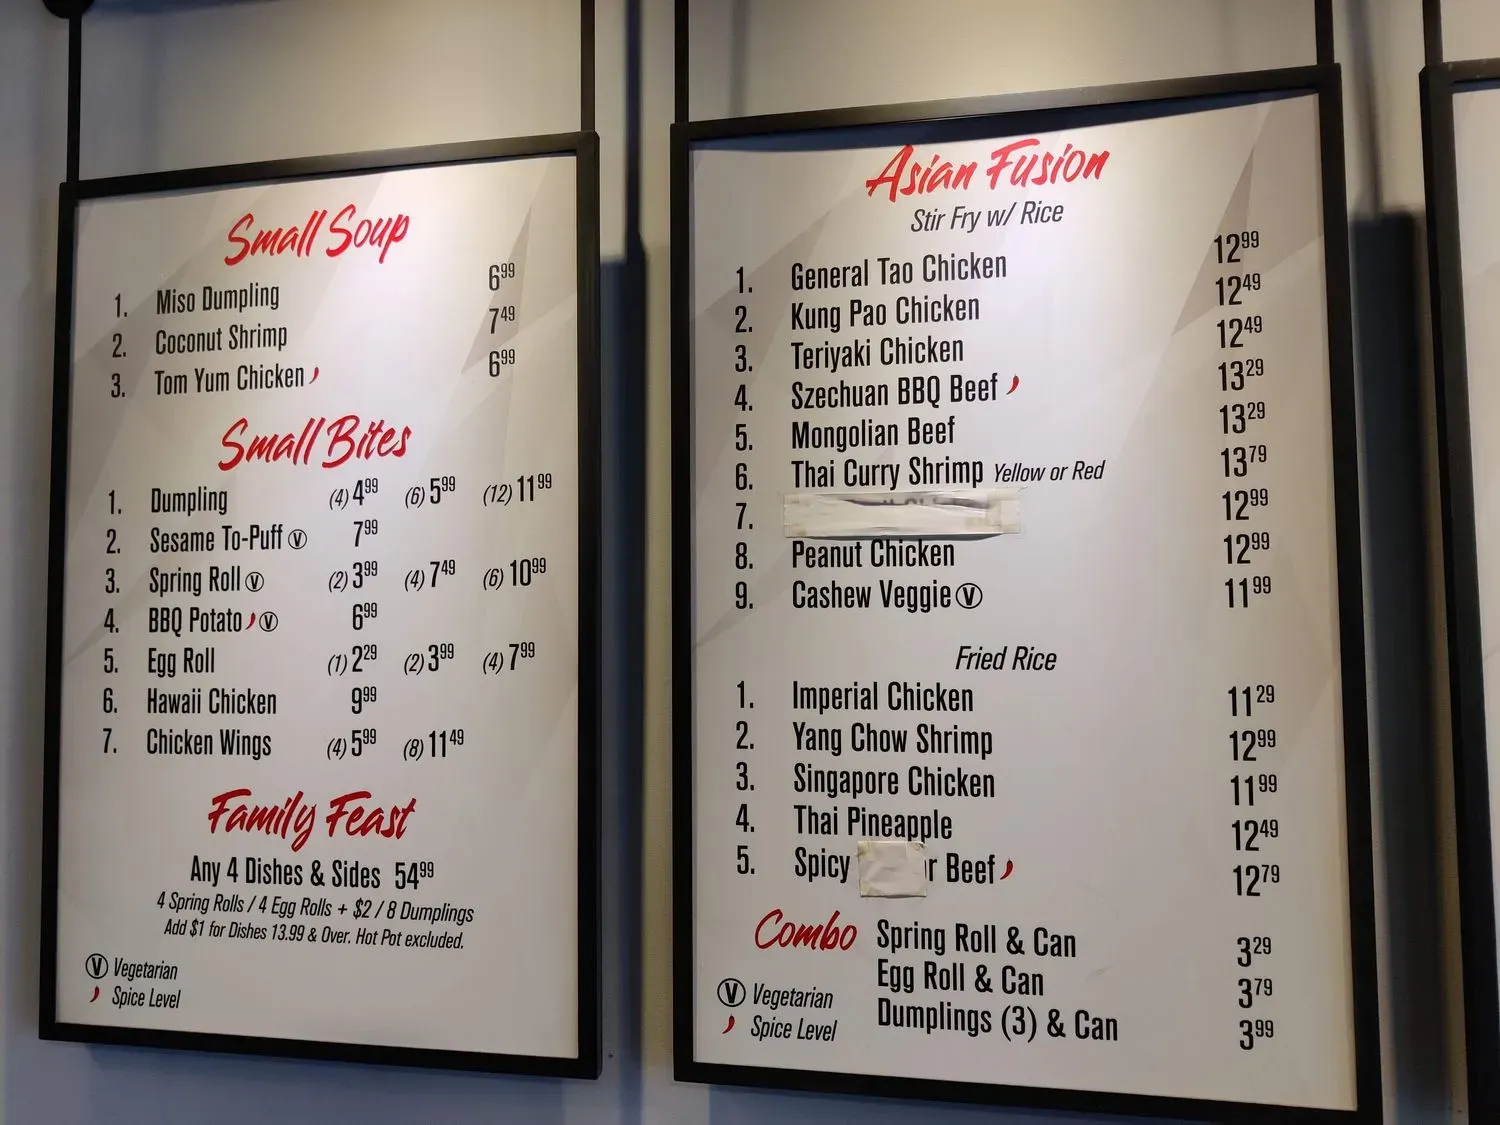 Small Soup
1. Miso Dumpling 6.99
2. Coconut Shrimp 7.49
3. Tom Yum Chicken 6.99
Small Bites
1. Dumpling (4) 4.99 (6) 5.99 (12) 11.99
2. Sesame To-Puff V 7.99
3. Spring Roll V (2) 3.99 (4) 7.49 (6) 10.99
4. BBQ Potato V 6.99
5. Egg Roll (1) 2.29 (2) 3.99 (4) 7.99
6. Hawaii Chicken 9.99
7. Chicken Wings (4) 5.99 (8) 11.49
Family Feast
Any 4 Dishes & Sides 54.99
4 Spring Rolls / 4 Egg Rolls + $2 / 8 Dumplings
Add $1 for Dishes 13.99 & Over. Hot Pot excluded.
V Vegetarian
Spice Level
Asian Fusion
Stir Fry w/ Rice
1. General Tao Chicken 12.99
2. Kung Pao Chicken 12.49
3. Teriyaki Chicken 12.49
4. Szechuan BBQ Beef 13.29
5. Mongolian Beef 13.29
6. Thai Curry Shrimp Yellow or Red 13.79
7. 12.99
8. Peanut Chicken 12.99
9. Cashew Veggie V 11.99
Fried Rice
1. Imperial Chicken 11.29
2. Yang Chow Shrimp 12.99
3. Singapore Chicken 11.99
4. Thai Pineapple 12.49
5. Spicy Beef 12.79
Combo Spring Roll & Can 3.29
Egg Roll & Can 3.79
Dumplings (3) & Can 3.99
V Vegetarian
Spice Level